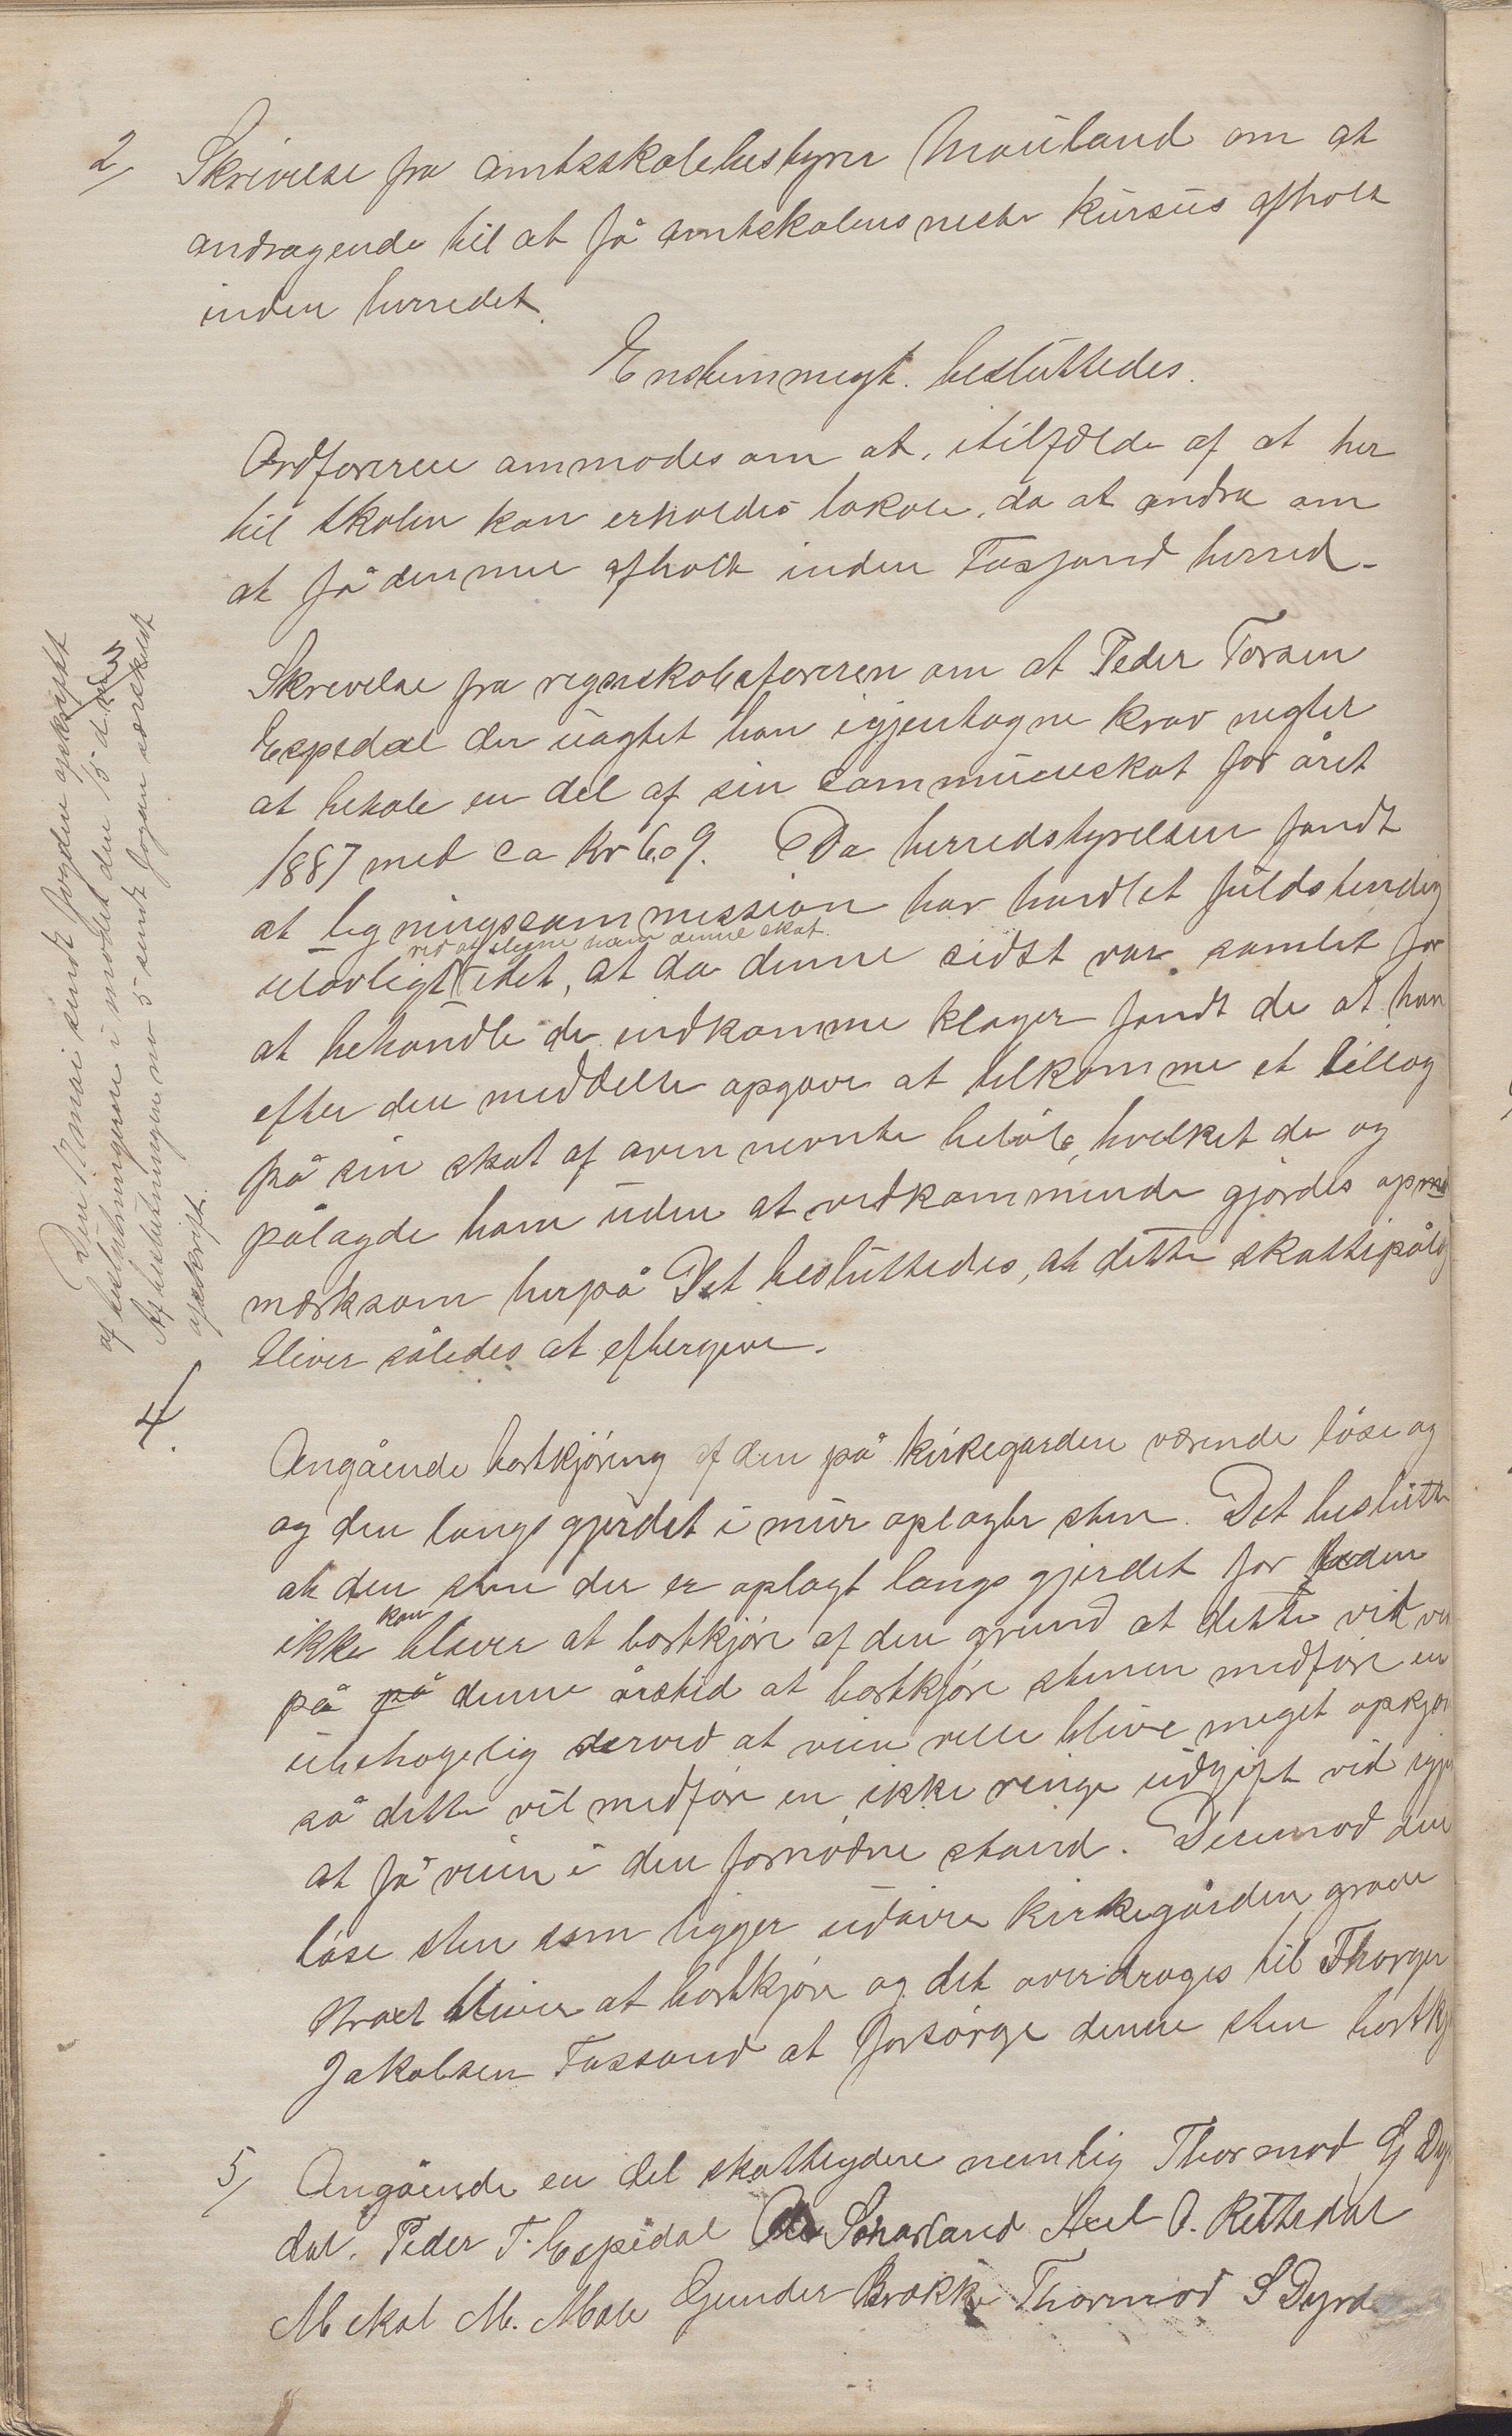 2/ Skrivelse fra amtsskolebestyrer Mouland om at
andragende til at få amtskolens neste kursus afholt
inden herredet.
Enstemmegt. besluttedes.
Ordføreren ammodes om at, itilfælde af at her
til skolen kan erholdes lokale, da at andra om
at få denne afholt inden Fosjand herred.
Skrivelse fra regnskabsføreren om at Peder Torsen
Espedal der uagtet han igjentagne krav negter
at betale en del af sin communeskat for året
1887 med ca kr 6.09. Da herredstyrelsen fandt
at ligningscommission har handlet fuldstendig
ved at ilegne ham denne skat.
ulovligt idet, at da denne sidst var samlet for
at behandle de indkomme klager fandt de at han
efter den meddelte opgave at tilkomme et tillæg
på sin skat af aven nevnte beløb, hvilket de og
pålagde ham uden at vedkommende gjørdes opme
mærksom herpå Det besluttedes, at dette skattepålæg
bliver således at eftergive.
Den 17 mai sendt fogden afskrift
af beslutningerne i mødet den 15 d.
Af beslutningen no 5 sendt fogen særskilt
afskrift.
4/.
Angående bortkjøring af den på kirkegarden værende løse og
og den langs gjerdet i mur oplagte sten. Det beslutte
at den sten der er oplagt langs gjerdet for
kan
ikke bliver at bortkjøre af den grund at dette vil
på på denne årstid at bortkjøre stenen medføre en
ubehagelig derved at veien ville blive meget opkjør
så dette vil medføre en ikke ringe udgift ved igje
at få veien i den fornødne stand. Derimod den
løse sten som ligger udover kirkegården
strax bliver at bortkjøre og det overdrages til Thorger
Jakobsen Fossand at forsørge denne sten bortkj
5/ Angående en del skattydere nemlig Thormod G Dy
dal. Peder T. Espedal Ole Axel O. Rettedal
Mikal M. Mæle Gunder Brække Thormod S Dyrd